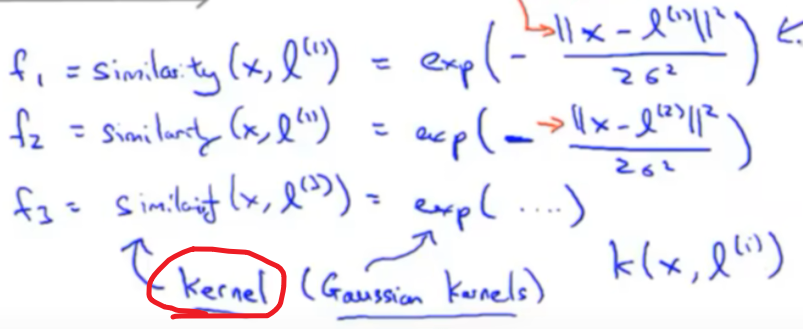 f₁ = similarity (x, l⁽¹⁾) = exp(- ||x - l⁽¹⁾||² / 2σ²)
f₂ = similarity (x, l⁽¹⁾) = exp(- ||x - l⁽²⁾||² / 2σ²)
f₃ = similarity (x, l⁽³⁾) = exp( ....)
kernel (Gaussian kernels) k(x, l⁽ⁱ⁾)